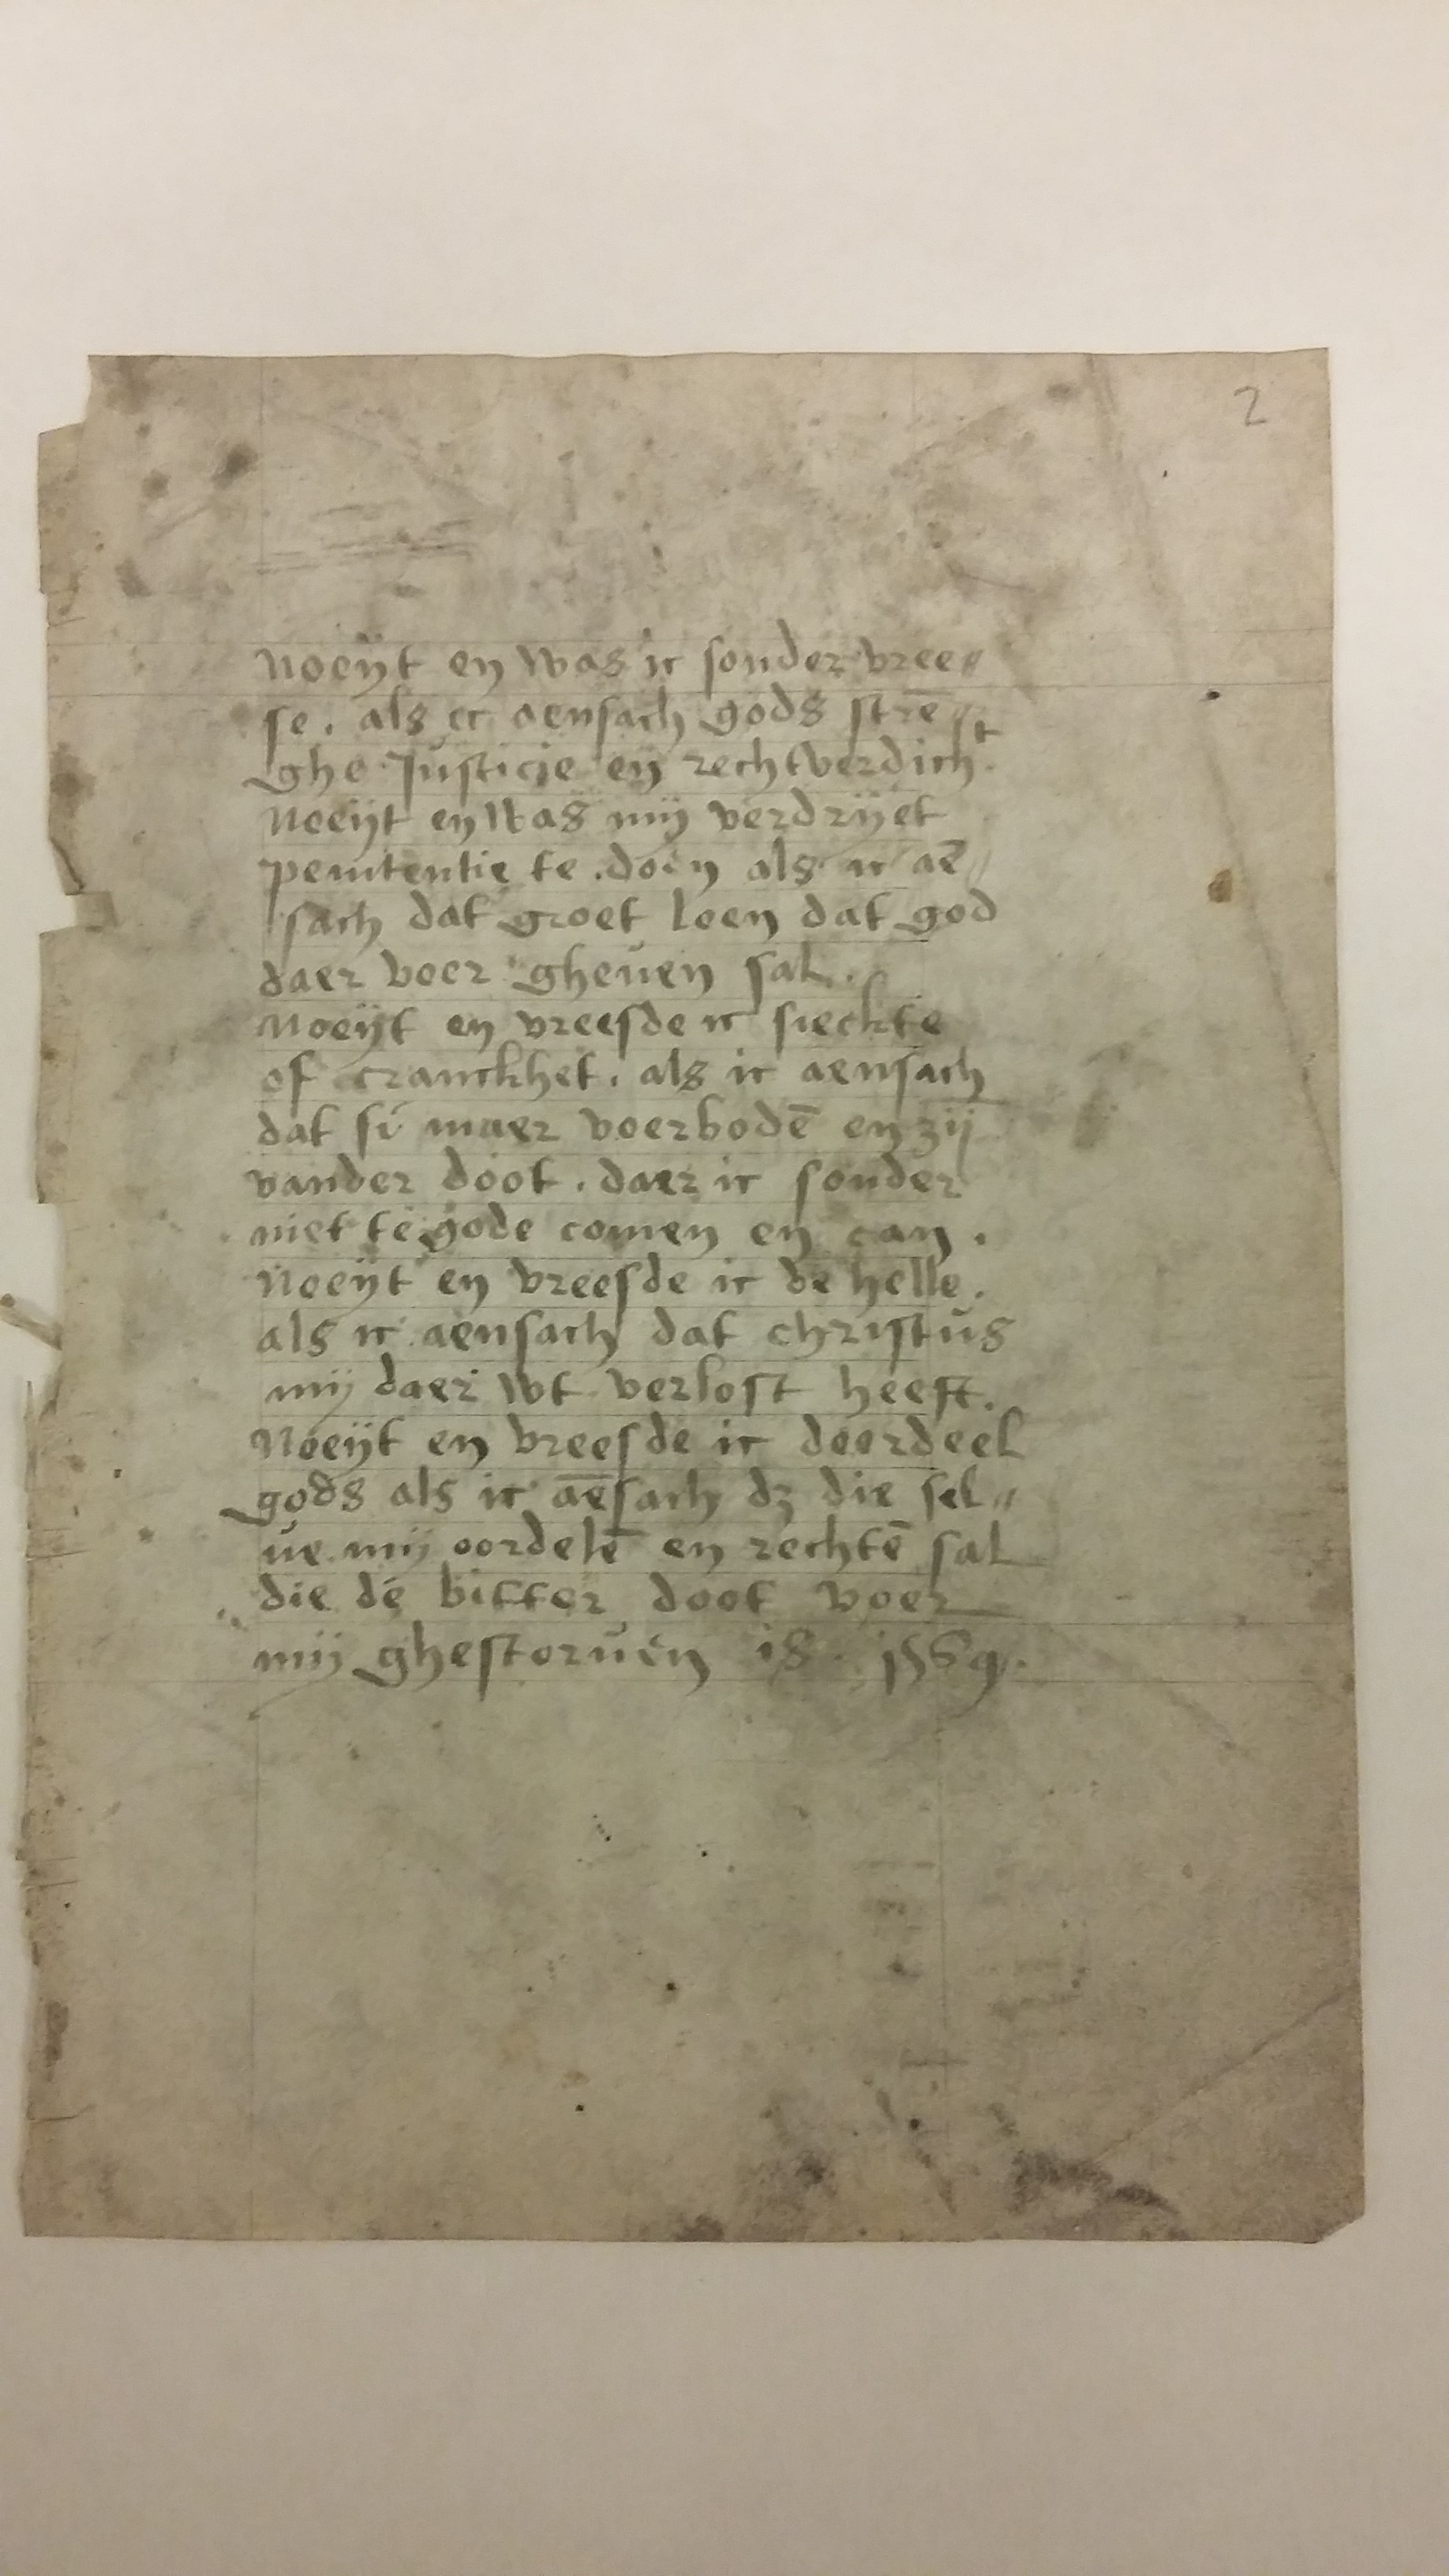 2
Noeÿt en was ic sonder vree〃
se. als ic aensach gods strē〃
ghe Justicie en̄ rechtverdichᵗ.
Noeÿt en was mij verdrÿet
penitentie te doen als ic aē〃
sach dat groet loen dat god
daer voer gheuen sal.
Noeÿt en vreesde ic sieckte
of cranckhet. als ic aensach
dat si maer voerbodē en zij
vander doot. daer ic sonder
niet te gode comen en can.
Noeÿt en vreesde ic de helle.
als ic aensach dat christus
mij daer wt verlost heeft.
Noeÿt en vreesde ic doordeel
gods als ic aēsach dz die sel〃
ue mij oordelē en rechtē sal
die de bitter doot voer
mij ghestoruen is. 1569.